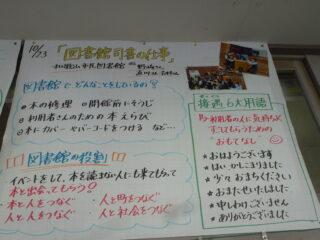 10/23
「図書館司書の仕事」
図書館で、どんなことをしているの?
本の修理
開館前にそうじ
利用者さんのための本えらび
本にカバーやバーコードをつける など…
図書館の役割
イベントをして、本を読まない人にも来てもらって
本と出会ってもらう!
・本と人をつなぐ
・人と町をつなぐ
・人と人をつなぐ
・人と社会をつなぐ
接遇6大用語
利用者の人に気持ちよく
すごしてもらうための
おもてなし
★おはようございます
★はい かしこまりました
★少々おまちください
★おまたせいたしました
★申しわけございません
★ありがとうございました